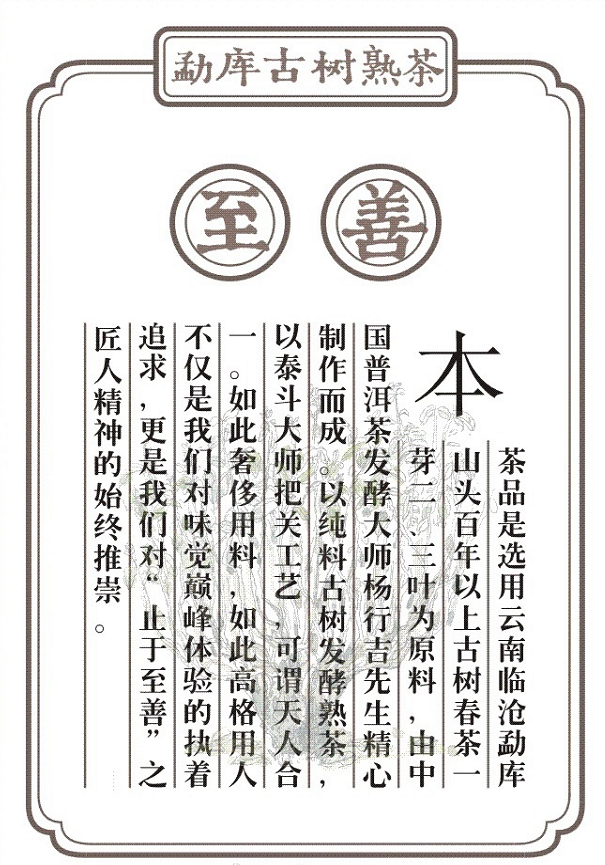 勐库古树熟茶
至善
本
茶品是选用云南临沧勐库
山头百年以上古树春茶一
芽二、三叶为原料，由中
国普洱茶发酵大师杨行吉先生精心
制作而成。以纯料古树发酵熟茶，
以泰斗大师把关工艺，可谓天人合
一。如此奢侈用料，如此高格用人
不仅是我们对味觉巅峰体验的执着
追求，更是我们对“止于至善”之
匠人精神的始终推崇。